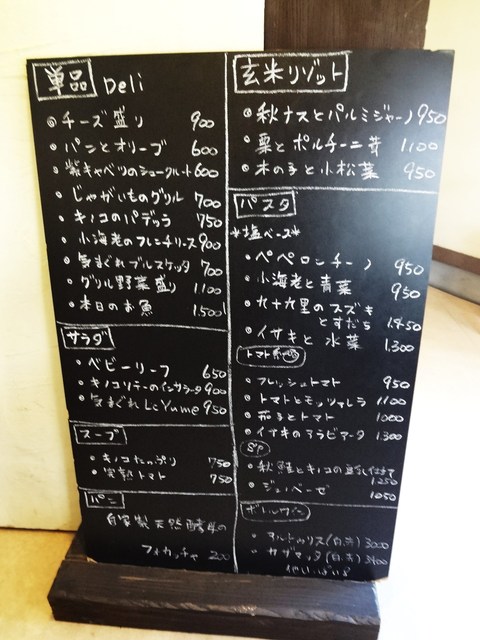 単品 Deli
チーズ盛り 900
パンとオリーブ 600
紫キャベツのシュークルート 600
じゃがいものグリル 700
キノコのパデッラ 750
小海老のフレンチソース 900
気まぐれブルスケッタ 700
グリル野菜盛り 1100
本日のお魚 1,500
サラダ
ベビーリーフ 650
キノコソテーのインサラータ 900
気まぐれ Le Yume 950
スープ
キノコたっぷり 750
完熟トマト 750
パン
自家製天然酵母の
フォカッチャ 200
玄米リゾット
秋ナスとパルミジャーノ 950
栗とポルチーニ茸 1100
木の子と小松菜 950
パスタ
*塩ベース*
ペペロンチーノ 950
小海老と青菜 950
九十九里のスズキ
とすだち 1450
イサキと水菜 1,300
トマト
フレッシュトマト 950
トマトとモッツァレラ 1100
茄子とトマト 1000
イサキのアラビアータ 1300
SP
秋鮭とキノコの 1250
ジェノベーゼ 1050
ボトルワイン
(白・赤) 3000
カサマッタ (白・赤) 3400